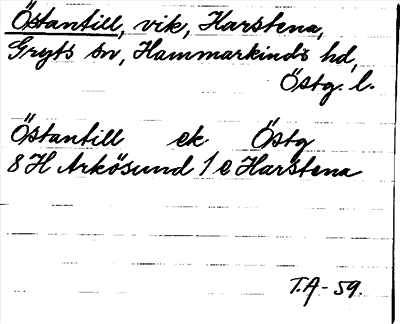 Östantill, vik, Harstena,
Gryts sn, Hammarkinds hd,
Östg. l.
Östantill ek. Östg
8 H Arkösund 1 e Harstena
T.A - 59.